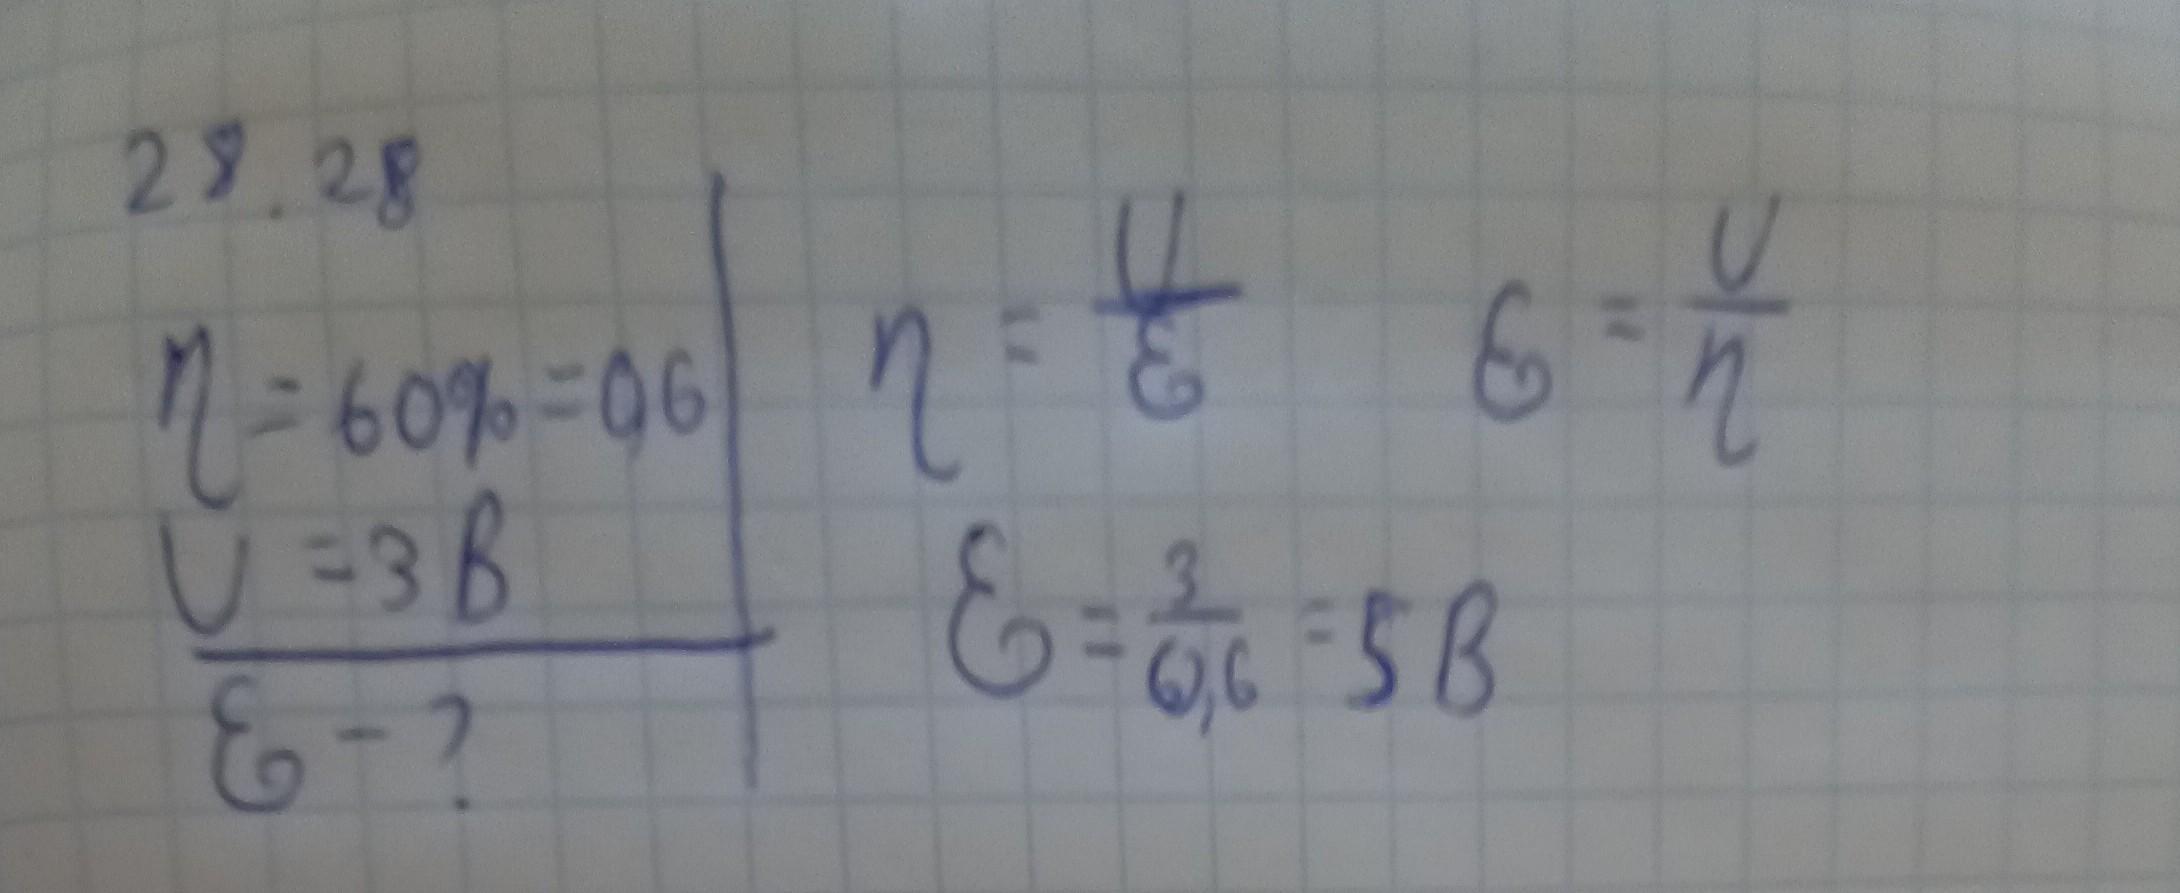 28.28
η = 60% = 0,6
U = 3 В
ℰ - ?
η = U/ℰ ℰ = U/η
ℰ = 3/0,6 = 5 В